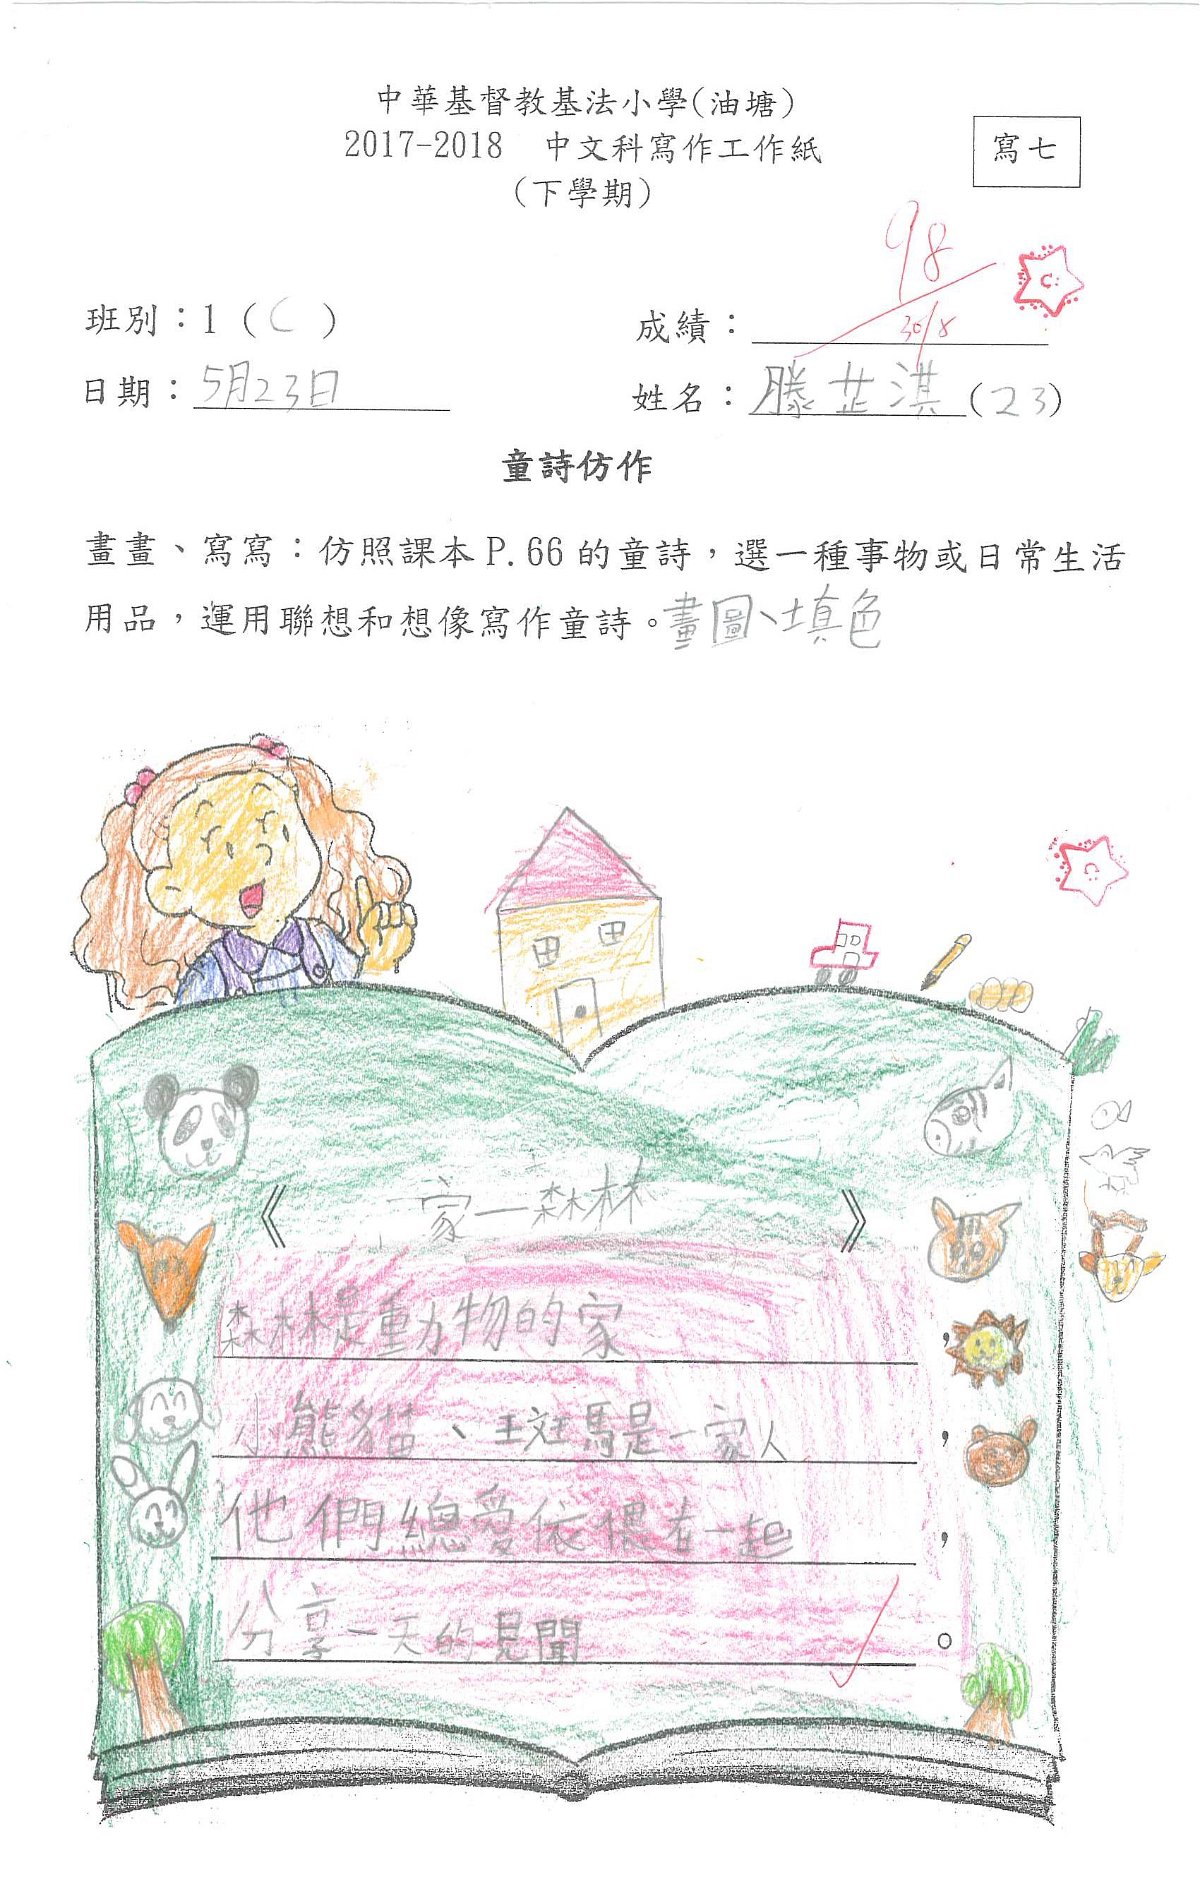 中華基督教基法小學(油塘)
2017-2018 中文科寫作工作紙
寫七
(下學期)
98
30/8
班別：1 ( C )
成績：
日期：5月23日
姓名：滕芷淇(23)
童詩仿作
畫畫、寫寫：仿照課本P.66的童詩，選一種事物或日常生活
用品，運用聯想和想像寫作童詩。畫圖、填色
《 家—森林 》
森林是動物的家，
小熊猫、斑馬是一家人，
他們總愛依偎在一起，
分享一天的見聞。